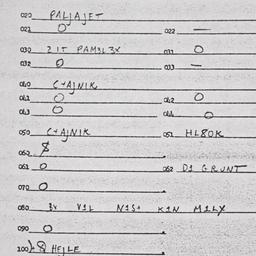 020 PALJAJET
021 O 022 —
030 2 IT PAM3L 3X
032 O 031 O
033 —
040 C+AJNIK
041 O 042 O
043 O 044 O
050 C+AJNIK 051 HL80K
052 $
061 O 062 D1 GRUNT
070 O
080 3X V1L N1S+ K1N M1LX
090 O
100 HEJLE